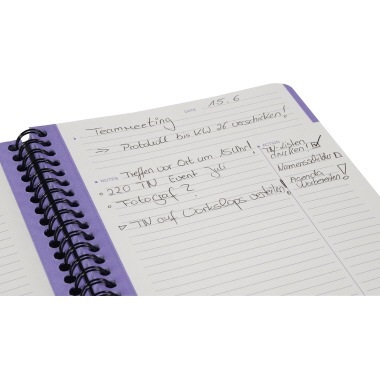 DATE 15.6
Teammeeting
=> Protokoll bis KW 26 verschicken!
NOTES Treffen vor Ort um 15 Uhr!
220 TN Event Juli
Fotograf ?
▷ TN auf Workshops verteilen!
TN-Listen
drucken!
Namensschilder
Agenda
vorbereiten!